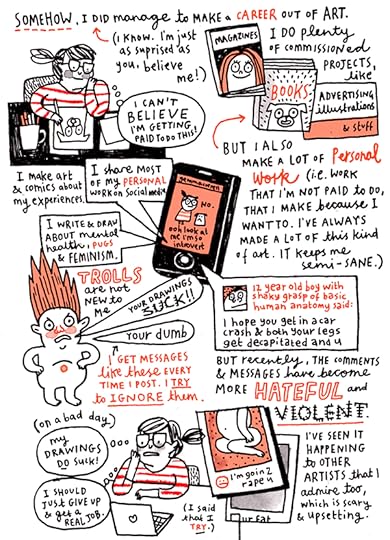 SOMEHOW, I DID MANAGE TO MAKE A CAREER OUT OF ART.
(I KNOW. I'M JUST
AS SUPRISED AS
YOU, BELIEVE
ME!)
MAGAZINES
I DO PLENTY
OF COMMISSIONED
PROJECTS,
like
BOOKS
ADVERTISING
illustrations
& stuff
I CAN'T
BELIEVE
I'M GETTING
PAID TO DO THIS!
I MAKE ART
& COMICS ABOUT
MY EXPERIENCES.
I SHARE MOST
OF MY PERSONAL
WORK ON SOCIAL MEDIA
NO.
ooh look at
me I'm so
introvert
BUT I ALSO
MAKE A LOT OF Personal
Work (i.e. WORK
THAT I'M NOT PAID TO DO,
THAT I MAKE BECAUSE I
WANT TO. I'VE ALWAYS
MADE A LOT OF THIS KIND
OF ART. IT KEEPS ME
SEMI-SANE.)
I WRITE & DRAW
ABOUT MENTAL
HEALTH, PUGS
& FEMINISM.
TROLLS
are not
NEW to
ME
YOUR DRAWINGS
SUCK!!
Your dumb
12 year old boy with
shaky grasp of basic
human anatomy said:
I hope you get in a car
crash & both your legs
get decapitated and u
I GET MESSAGES
like these EVERY
TIME I POST. I TRY
to IGNORE them.
BUT RECENTLY, THE COMMENTS
& MESSAGES HAVE BECOME
MORE HATEFUL and
VIOLENT.
(on a bad day)
my
DRAWINGS
DO SUCK!
I SHOULD
JUST GIVE UP
& get a
REAL JOB.
(I said
that I
TRY.)
I'm goin 2
rape u
I'VE SEEN IT
HAPPENING
to OTHER
ARTISTS that I
admire too,
which is scary
& upsetting.